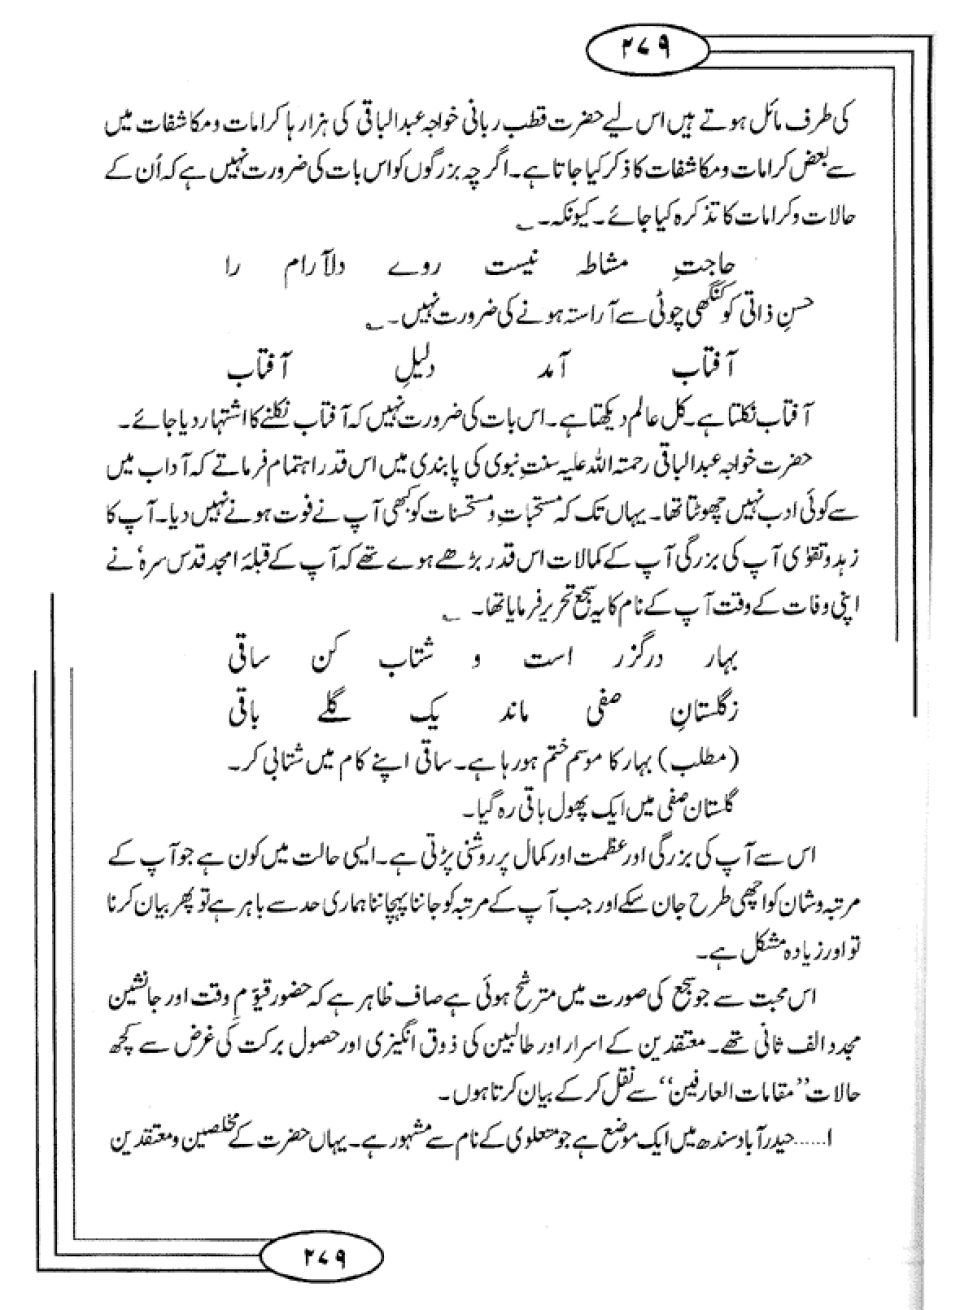 ۲۷۹
کی طرف مائل ہوتے ہیں اس لیے حضرت قطب ربانی خواجہ عبدالباقی کی ہزارہا کرامات ومکاشفات میں
سے بعض کرامات ومکاشفات کا ذکر کیا جاتا ہے۔ اگرچہ بزرگوں کو اس بات کی ضرورت نہیں ہے کہ اُن کے
حالات وکرامات کا تذکرہ کیا جائے۔ کیونکہ۔ ؎
حاجتِ مشاطہ نیست روے دلآرام را
حسنِ ذاتی کو کنگھی چوٹی سے آراستہ ہونے کی ضرورت نہیں۔ ؎
آفتاب آمد دلیلِ آفتاب
آفتاب نکلتا ہے۔ کل عالم دیکھتا ہے۔ اس بات کی ضرورت نہیں کہ آفتاب نکلنے کا اشتہار دیا جائے۔
حضرت خواجہ عبدالباقی رحمتہ اللہ علیہ سنتِ نبوی کی پابندی میں اس قدر اہتمام فرماتے کہ آداب میں
سے کوئی ادب نہیں چھوٹتا تھا۔ یہاں تک کہ مستحبات و مستحسنات کو کبھی آپ نے فوت ہونے نہیں دیا۔ آپ کا
زہد و تقوٰی آپ کی بزرگی آپ کے کمالات اس قدر بڑھے ہوے تھے کہ آپ کے قبلۂ امجد قدس سرہٗ نے
اپنی وفات کے وقت آپ کے نام کا یہ سجع تحریر فرمایا تھا۔ ؎
بہار درگزر است و شتاب کن ساقی
زگلستانِ صفی ماند یک گلے باقی
(مطلب) بہار کا موسم ختم ہورہا ہے۔ ساقی اپنے کام میں شتابی کر۔
گلستان صفی میں ایک پھول باقی رہ گیا۔
اس سے آپ کی بزرگی اور عظمت اور کمال پر روشنی پڑتی ہے۔ ایسی حالت میں کون ہے جو آپ کے
مرتبہ وشان کو اچھی طرح جان سکے اور جب آپ کے مرتبہ کو جاننا پہچاننا ہماری حد سے باہر ہے تو پھر بیان کرنا
تو اور زیادہ مشکل ہے۔
اس محبت سے جو سجع کی صورت میں مترشح ہوئی ہے صاف ظاہر ہے کہ حضور قیوّمِ وقت اور جانشین
مجدد الف ثانی تھے۔ معتقدین کے اسرار اور طالبین کی ذوق انگیزی اور حصول برکت کی غرض سے کچھ
حالات ’’مقامات العارفین‘‘ سے نقل کرکے بیان کرتا ہوں۔
۱......حیدرآباد سندھ میں ایک موضع ہے جو متعلوی کے نام سے مشہور ہے۔ یہاں حضرت کے مخلصین و معتقدین
۲۷۹